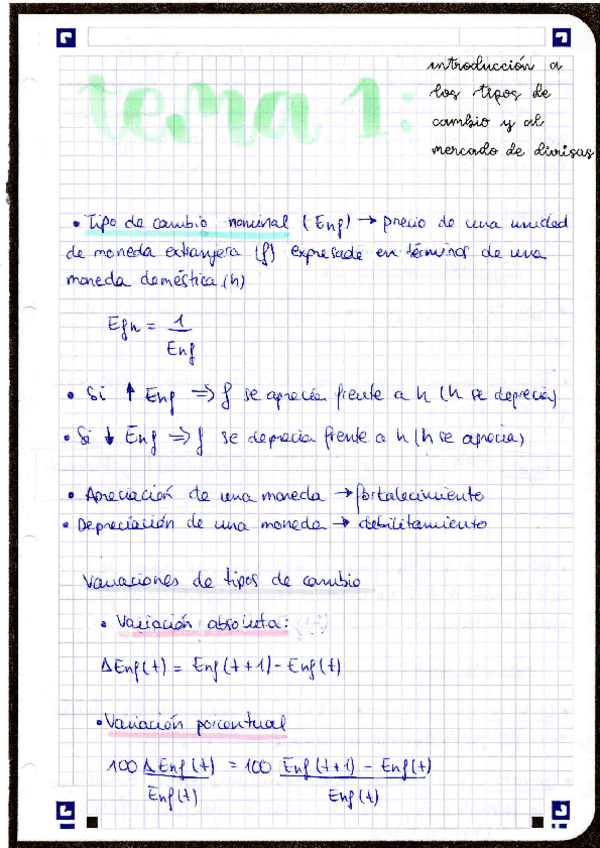 tema 1:
introducción a
los tipos de
cambio y al
mercado de divisas
• Tipo de cambio nominal (Enf) → precio de una unidad
de moneda extranjera (f) expresada en términos de una
moneda doméstica (h)
Efh = 1 / Enf
• Si ↑ Enf => f se aprecia frente a h (h se deprecia)
• Si ↓ Enf => f se deprecia frente a h (h se aprecia)
• Apreciación de una moneda → fortalecimiento
• Depreciación de una moneda → debilitamiento
Variaciones de tipos de cambio
• Variación absoluta:
ΔEnf(t) = Enf(t+1) - Enf(t)
• Variación porcentual
100 ΔEnf(t) / Enf(t) = 100 Enf(t+1) - Enf(t) / Enf(t)